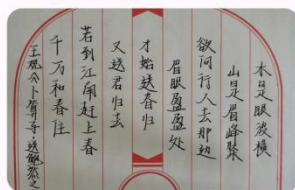 水是眼波横
山是眉峰聚
欲问行人去那边
眉眼盈盈处
才始送春归
又送君归去
若到江南赶上春
千万和春住
王观《卜算子·送鲍浩然之